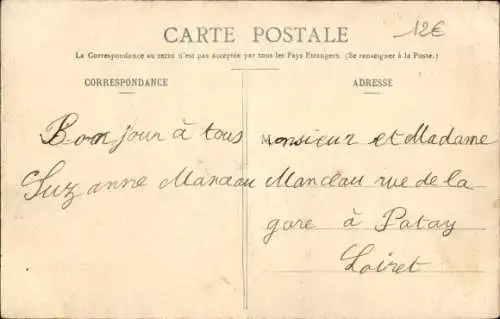 CARTE POSTALE
12€
La Correspondance au recto n'est pas acceptée par tous les Pays Etrangers. (Se renseigner à la Poste.)
CORRESPONDANCE
Bonjour à tous
Suzanne Manceau
ADRESSE
Monsieur et Madame
Manceau rue de la
gare à Patay
Loiret